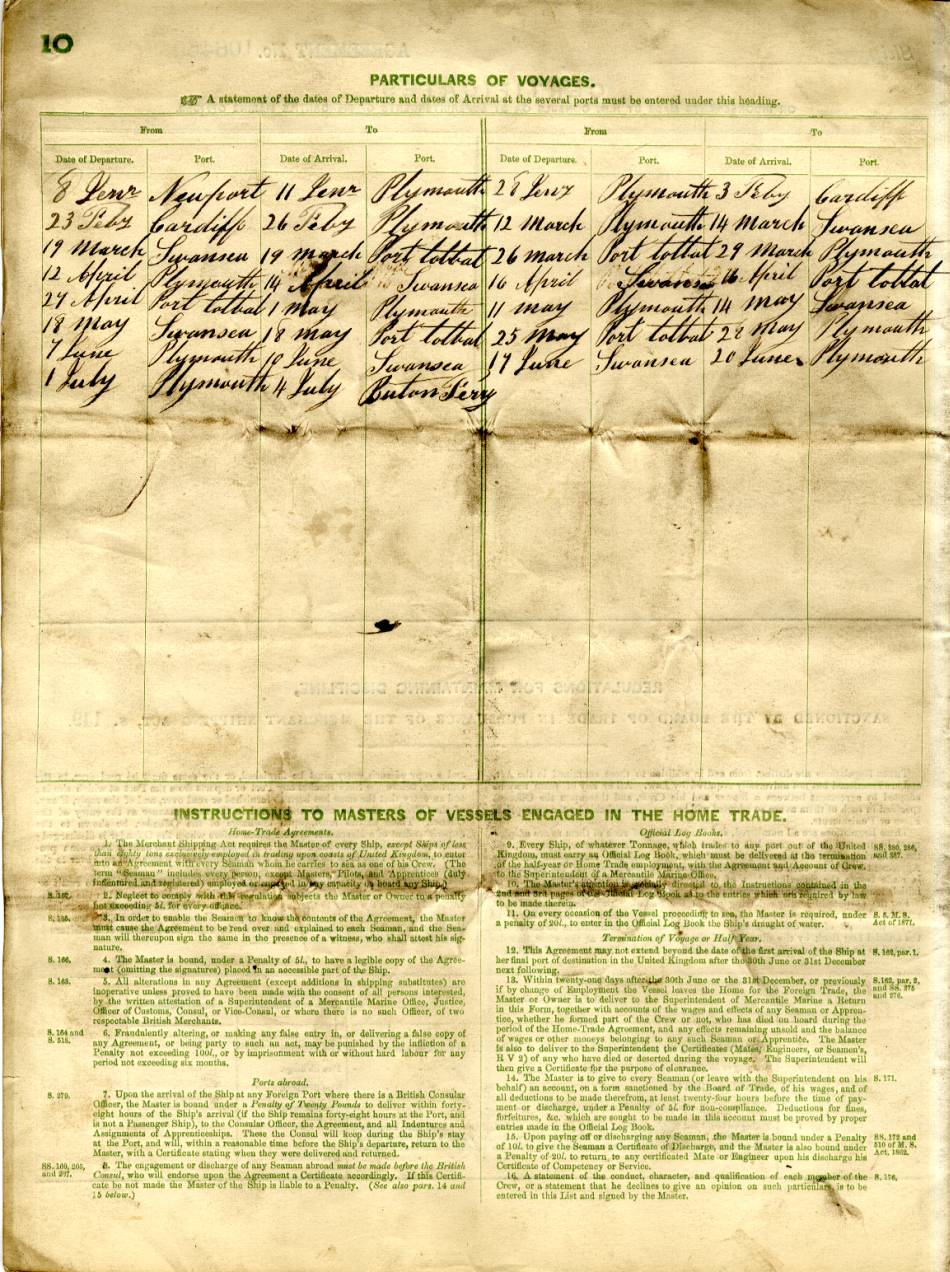 10
PARTICULARS OF VOYAGES.
A statement of the dates of Departure and dates of Arrival at the several ports must be entered under this heading.
From To From To
Date of Departure. Port. Date of Arrival. Port. Date of Departure. Port. Date of Arrival. Port.
8 Newport 11 Plymouth 28 Plymouth 3 Feby Cardiff
23 Feby Cardiff 26 Feby Plymouth 12 March Plymouth 14 March Swansea
19 March Swansea 19 march Port tolbat 26 march Port tolbat 29 March Plymouth
12 April Plymouth 14 April Swansea 16 April Swansea 16 April Port tolbat
27 April Port tolbat 1 may Plymouth 11 may Plymouth 14 may Swansea
18 may Swansea 18 may Port tolbat 25 may Port tolbat 28 may Plymouth
7 June Plymouth 10 June Swansea 17 June Swansea 20 June Plymouth
1 July Plymouth 4 July Briton Ferry
INSTRUCTIONS TO MASTERS OF VESSELS ENGAGED IN THE HOME TRADE.
Home-Trade Agreements.
1. The Merchant Shipping Act requires the Master of every Ship, except Ships of less
than eighty tons exclusively employed in trading upon coasts of United Kingdom, to enter
into an Agreement with every Seaman whom he carries to sea as one of his Crew. (The
term "Seaman" includes every person, except Masters, Pilots, and Apprentices (duly
indentured and registered) employed or engaged in any capacity on board any Ship.)
2. Neglect to comply with this regulation subjects the Master or Owner to a penalty
not exceeding 5l. for every offence.
3. In order to enable the Seaman to know the contents of the Agreement, the Master
must cause the Agreement to be read over and explained to each Seaman, and the Sea-
man will thereupon sign the same in the presence of a witness, who shall attest his sig-
nature.
S. 166. 4. The Master is bound, under a Penalty of 5l., to have a legible copy of the Agree-
ment (omitting the signatures) placed in an accessible part of the Ship.
S. 163. 5. All alterations in any Agreement (except additions in shipping substitutes) are
inoperative unless proved to have been made with the consent of all persons interested,
by the written attestation of a Superintendent of a Mercantile Marine Office, Justice,
Officer of Customs, Consul, or Vice-Consul, or where there is no such Officer, of two
respectable British Merchants.
S. 164 and S. 518. 6. Fraudulently altering, or making any false entry in, or delivering a false copy of
any Agreement, or being party to such an act, may be punished by the infliction of a
Penalty not exceeding 100l., or by imprisonment with or without hard labour for any
period not exceeding six months.
Ports abroad.
S. 279. 7. Upon the arrival of the Ship at any Foreign Port where there is a British Consular
Officer, the Master is bound under a Penalty of Twenty Pounds to deliver within forty-
eight hours of the Ship's arrival (if the Ship remains forty-eight hours at the Port, and
is not a Passenger Ship), to the Consular Officer, the Agreement, and all Indentures and
Assignments of Apprenticeships. These the Consul will keep during the Ship's stay
at the Port, and will, within a reasonable time before the Ship's departure, return to the
Master, with a Certificate stating when they were delivered and returned.
SS. 160, 205, and 207. 8. The engagement or discharge of any Seaman abroad must be made before the British
Consul, who will endorse upon the Agreement a Certificate accordingly. If this Certifi-
cate be not made the Master of the Ship is liable to a Penalty. (See also pars. 14 and
15 below.)
Official Log Books.
9. Every Ship, of whatever Tonnage, which trades to any port out of the United SS. 280, 286, and 287.
Kingdom, must carry an Official Log Book, which must be delivered at the termination
of the half-year or Home Trade employment, with the Agreement and Account of Crew,
to the Superintendent of a Mercantile Marine Office.
10. The Master's attention is specially directed to the Instructions contained in the
2nd and 3rd pages of the Official Log Book as to the entries which are required by law
to be made therein.
11. On every occasion of the Vessel proceeding to sea, the Master is required, under S. 5, M. S. Act of 1871.
a penalty of 20l., to enter in the Official Log Book the Ship's draught of water.
Termination of Voyage or Half Year.
12. This Agreement may not extend beyond the date of the first arrival of the Ship at S. 162, par. 1.
her final port of destination in the United Kingdom after the 30th June or 31st December
next following.
13. Within twenty-one days after the 30th June or the 31st December, or previously S. 162, par. 2, and SS. 275 and 276.
if by change of Employment the Vessel leaves the Home for the Foreign Trade, the
Master or Owner is to deliver to the Superintendent of Mercantile Marine a Return
in this Form, together with accounts of the wages and effects of any Seaman or Appren-
tice, whether he formed part of the Crew or not, who has died on board during the
period of the Home-Trade Agreement, and any effects remaining unsold and the balance
of wages or other moneys belonging to any such Seaman or Apprentice. The Master
is also to deliver to the Superintendent the Certificates (Mates, Engineers, or Seamen's,
R V 2) of any who have died or deserted during the voyage. The Superintendent will
then give a Certificate for the purpose of clearance.
14. The Master is to give to every Seaman (or leave with the Superintendent on his S. 171.
behalf) an account, on a form sanctioned by the Board of Trade, of his wages, and of
all deductions to be made therefrom, at least twenty-four hours before the time of pay-
ment or discharge, under a Penalty of 5l. for non-compliance. Deductions for fines,
forfeitures, &c. which are sought to be made in this account must be proved by proper
entries made in the Official Log Book.
15. Upon paying off or discharging any Seaman, the Master is bound under a Penalty SS. 172 and 510 of M. S. Act, 1862.
of 10l. to give the Seaman a Certificate of Discharge, and the Master is also bound under
a Penalty of 20l. to return, to any certificated Mate or Engineer upon his discharge his
Certificate of Competency or Service.
16. A statement of the conduct, character, and qualification of each member of the S. 176.
Crew, or a statement that he declines to give an opinion on such particulars, is to be
entered in this List and signed by the Master.